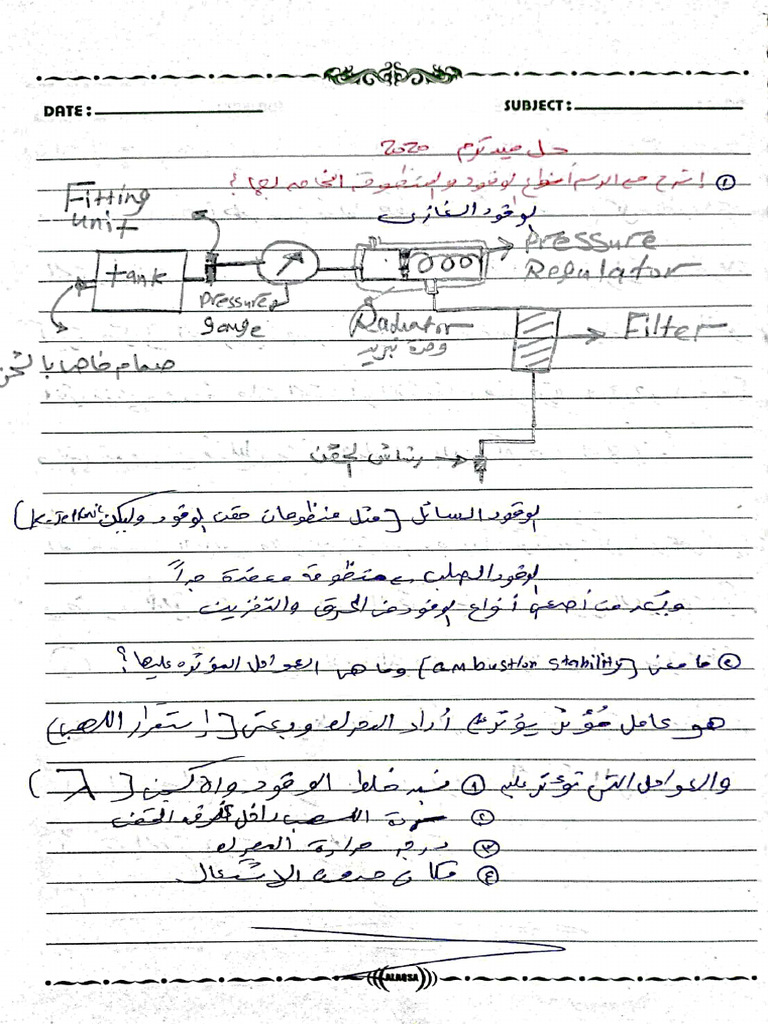 DATE:
SUBJECT:
حل ميد ترم 2020
① إشرح مع الرسم أنواع لوقود والمنظومة الخاصه لها؟
لوقود الغازى
Fitting unit
tank
Pressure gauge
Pressure Regulator
Radiator
وحدة تبريد
Filter
صمام خاص بالشحن
رشاش لحقن
لوقود السائل (مثل منظومات حقن لوقود وليكن K-Jetronic)
لوقود الصلب منظومة معقدة جداً
ويعد من أصعب أنواع لوقود في الحرق والتخزين
② ما معنى (Combustion stability) وما هى العوامل المؤثره عليها؟
هو عامل مؤثر يؤثر على أداء المحرك ويعنى (إستقرار اللهب)
والعوامل التى تؤثر عليه ① نسبه خلط الوقود والاكسجين (λ)
② سرعة اللهب داخل غرفه الحقن
③ درجه حرارة المحرك
④ مكان حدوث الاشتعال
ALAQSA